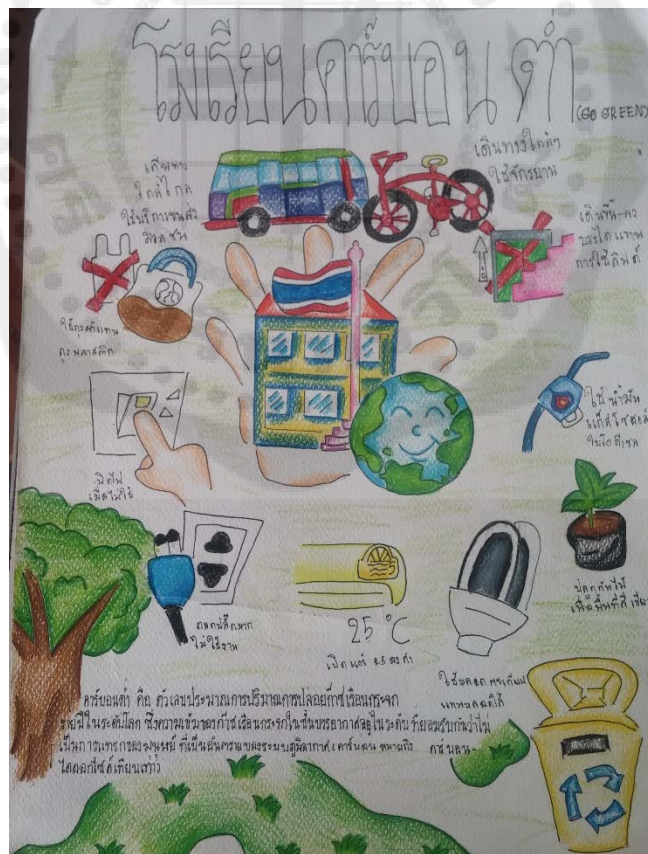 โรงเรียนคาร์บอน ต่ำ
(GO GREEN)
เดินทางใกล้ๆ
ใช้จักรยาน
ใกล้ไกล
ใช้บริการขนส่ง
มวลชน
เดินขึ้น-ลง
บันไดแทน
การใช้ลิฟต์
ใช้ถุงผ้าแทน
ถุงพลาสติก
ใช้น้ำมัน
แก๊สโซฮอล์
ปิดไฟ
เมื่อไม่ใช้
ปลูกต้นไม้
เพิ่มพื้นที่สีเขียว
ถอดปลั๊กหาก
ไม่ใช้งาน
25 °C
เปิดแอร์ 25 องศา
คาร์บอนต่ำ คือ ตัวเลขประมาณการปริมาณการปล่อยก๊าซเรือนกระจก
รายปีในระดับโลก ซึ่งความเข้มของก๊าซเรือนกระจกในชั้นบรรยากาศอยู่ในระดับ ที่ยอมรับกันว่าไม่
เป็นการแทรกของมนุษย์ ที่เป็นอันตรายของระบบภูมิอากาศ (คาร์บอน หมายถึง คาร์บอน
ไดออกไซด์เทียบเท่า)